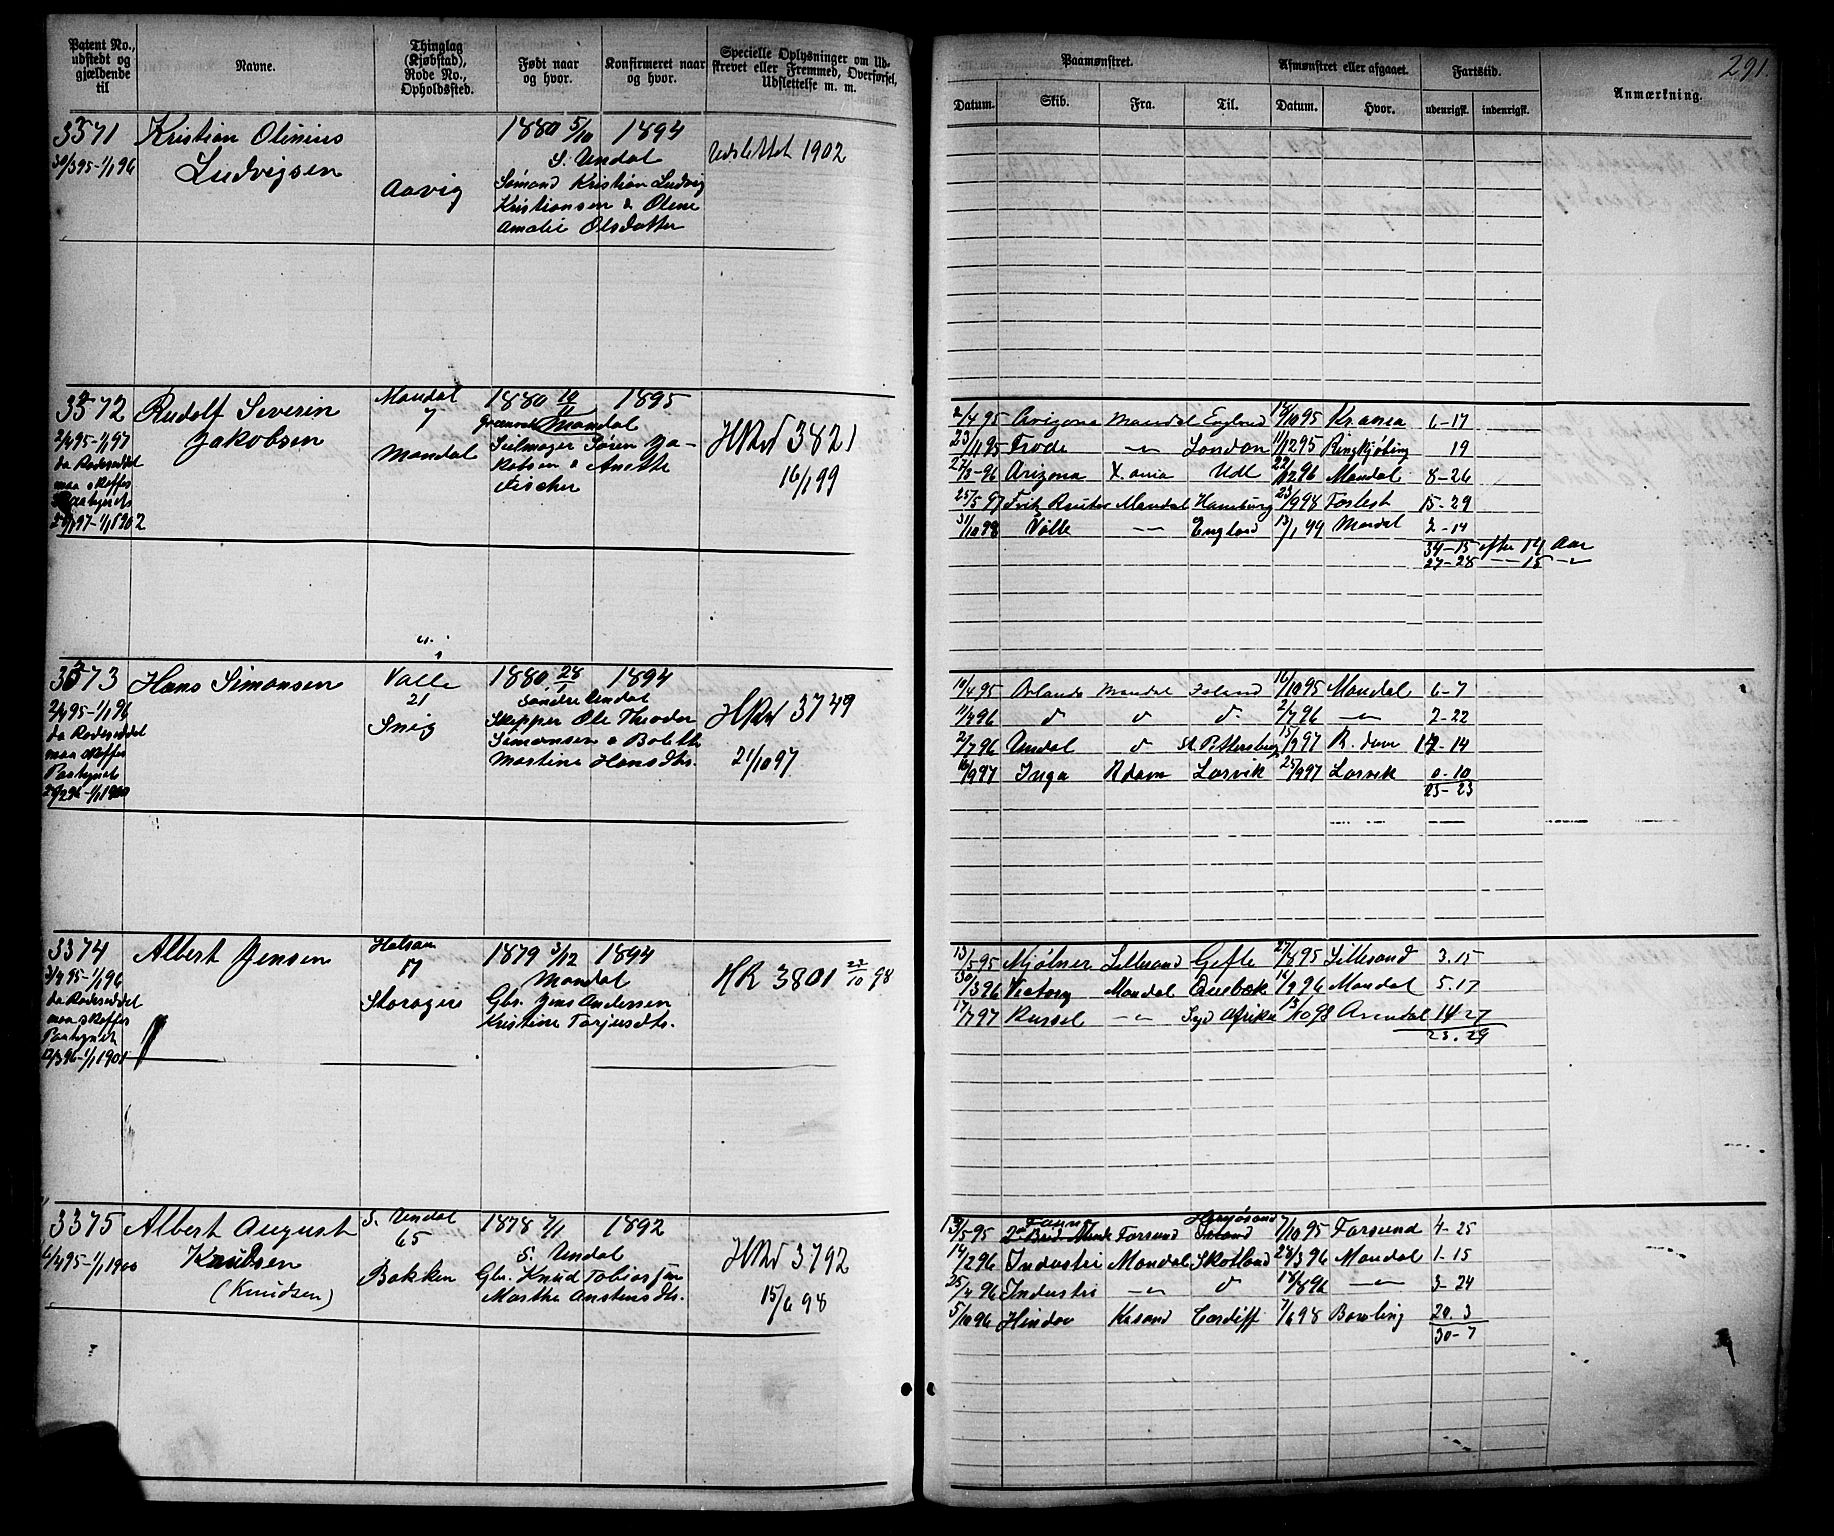 291.
Patent No., udstedt og gjældende til
Navne.
Thinglag (Kjøbstad), Rode No., Opholdssted.
Født naar og hvor.
Konfirmeret naar og hvor.
Specielle Oplysninger om Udskrevet eller Fremmed, Overførsel, Udslettelse m. m.
Paamønstret.
Afmønstret eller afgaaet.
Fartstid.
Anmærkning.
Datum.
Skib.
Fra.
Til.
Datum.
Hvor.
udenrigsk.
indenrigsk.
3371 Kristian Olinius
30/3 95-1/1 96 Ludvigsen
Aavig
1880 5/10 1894
S. Undal
Sømand Kristian Ludvig
Kristiansen & Olene
Amalie Olsdatter
Udslettet 1902
3372 Rudolf Severin
Jakobsen
2/4 95-1/1 97
da Rodeseddel
maa skaffes
Paategnet
Mandal
7
Mandal
1880 10/11 1895
Mandal
Seilmager Søren Ja-
kobsen & Anette
Fischer
HRw 3821
16/1 99
2/4 95 Arizona Mandal England 18/10 95 Kr.ania 6-17
23/11 95 Frode — London 11/12 95 Ringkjøbing 19
27/3-96 Arizona X.ania Udl 22/12 96 Mandal 8-26
25/5 97 Fritz Reuter Mandal Hamburg 23/9 98 Forlest 15-29
31/10 98 Valle — England 13/1 99 Mandal 2-14
34-15 efter 14 Aar
27-28 — 15 —
3373 Hans Simonsen
2/4 95-1/1 96
da Rodeseddel
maa skaffes
Paategnet
Valle
21
Snig
1880 28/1 1894
Søndre Undal
Skipper Ole Theodor
Simonsen & Bolette
Martine Hansdtr.
HRw 3749
21/10 97
10/4 95 Orlando Mandal Island 16/10 95 Mandal 6-7
11/4 96 d d d. 2/7 96 — 2-22
2/7 96 Undal d St. Pettersborg 15/9 97 R.dam 14
16/9 97 Inga Rdam Larvik 25/9 97 Larvik 0-10
25-23
3374 Albert Jensen
3/4 95-1/1 96
da Rodeseddel
maa skaffes
Paategnet
12/3 96-1/1 1901
Halsaa
17
Storager
1879 3/12 1894
Mandal
Gbr. Jens Andersen
Kristine Tarjusdtr.
HR 3801 22/10 98
13/5 95 Mjølner Lillesand Gefle 27/8 95 Lillesand 3.15
30/3 96 Victory Mandal Quebæk 14/9 96 Mandal 5.17
17/7 97 Russel — Syd Afrika 13/10 98 Arendal 14 27
23.29
3375 Albert August
Knudsen
(Knudsen)
6/4 95-1/1 1900
S. Undal
65
Bakken
1878 7/1 1892
S. Undal
Gbr. Knud Tobiassen
Marthe Anstensdtr.
HRw 3792
15/6 98
13/5 95 Farsund Island 7/10 95 Farsund 4-25
14/2 96 Industri Mandal Skotland 28/3 96 Mandal 1-15
25/4 96 Industri — d 18/8 96 — 3-24
5/10 96 Hindoo Krsand Cardiff 7/6 98 Bowling 20.3
30-7